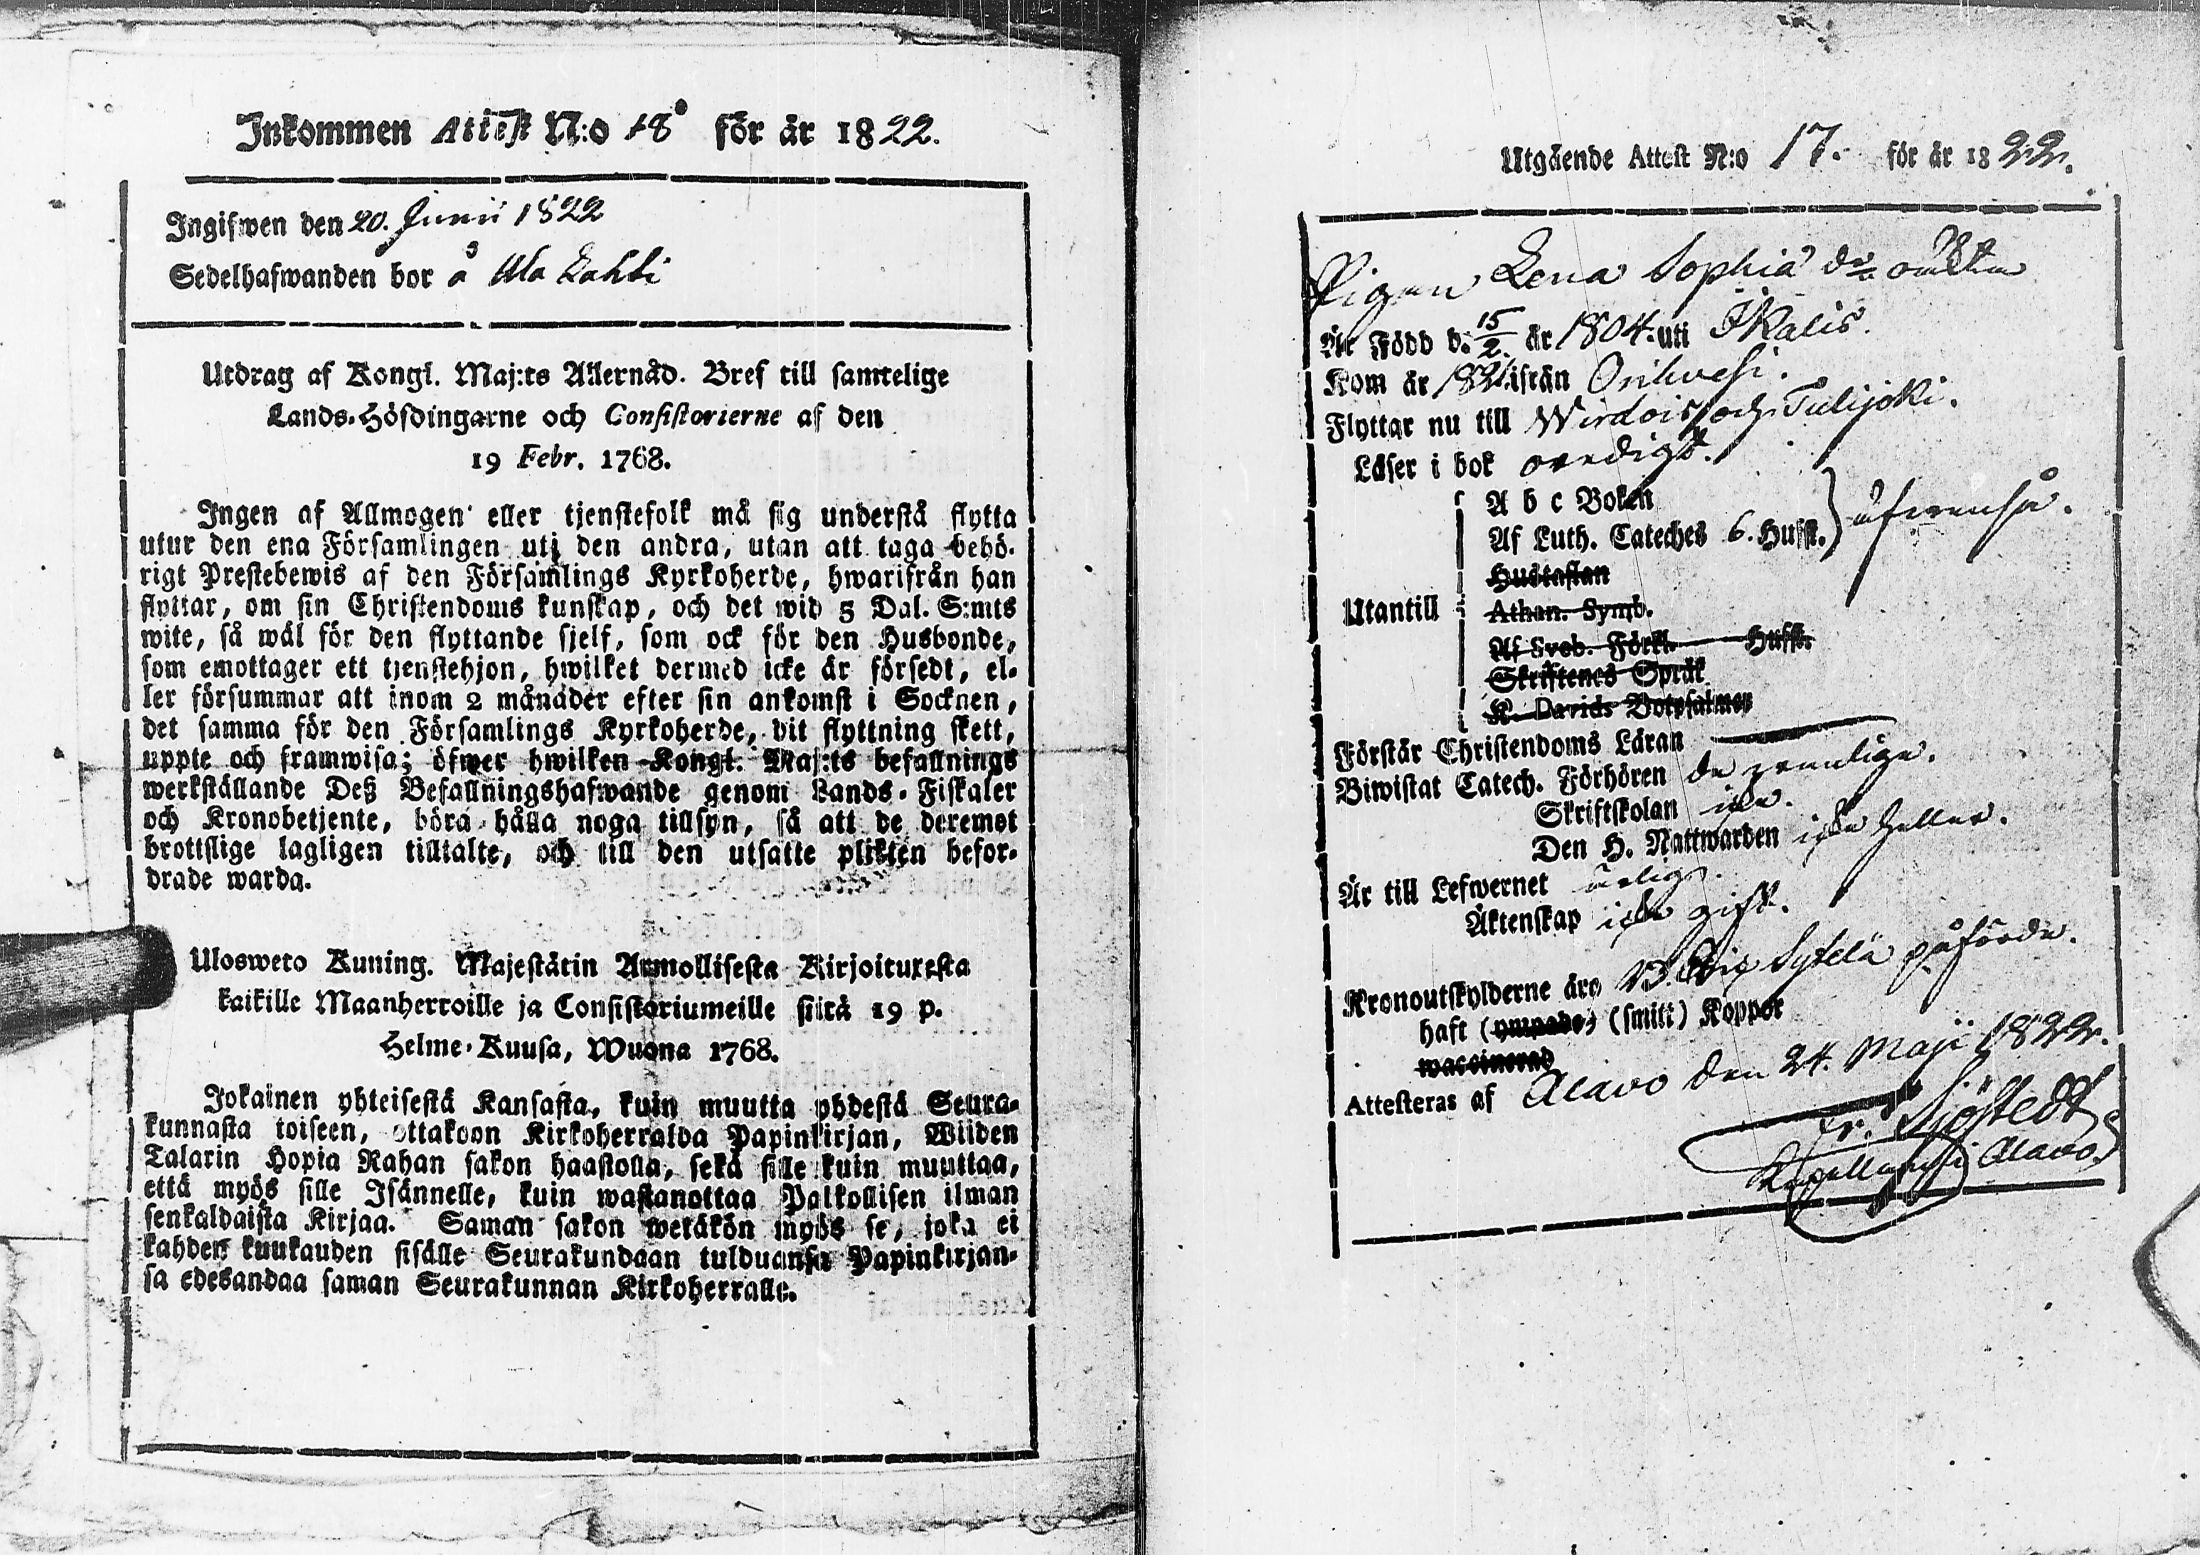 Inkommen Attest N:o 18 för år 1822.
Ingifwen den 20. Junii 1822
Sedelhafwanden bor å Ala Lahti
Utdrag af Kongl. Maj:ts Allernåd. Bref till samtelige
Lands-Höfdingarne och Consistorierne af den
19 Febr. 1768.
Ingen af Allmogen eller tjenstefolk må sig understå flytta
utur den ena Församlingen uti den andra, utan att taga behö-
rigt Prestebewis af den Församlings Kyrkoherde, hwarifrån han
flyttar, om sin Christendoms kunskap, och det wid 5 Dal. S:mts
wite, så wäl för den flyttande sjelf, som ock för den Husbonde,
som emottager ett tjenstehjon, hwilket dermed icke är försedt, el-
ler försummar att inom 2 månader efter sin ankomst i Socknen,
det samma för den Församlings Kyrkoherde, dit flyttning skett,
uppte och framwisa; öfwer hwilken Kongl. Maj:ts befallnings
werkställande Deß Befallningshafwande genom Lands-Fiskaler
och Kronobetjente, böra hålla noga tillsyn, så att de deremot
brottslige lagligen tilltalte, och till den utsatte plikten befor-
drade warda.
Ulosweto Kuning. Majestätin Armollisesta Kirjoituxesta
kaikille Maanherroille ja Consistoriumeille siitä 19 p.
Helme-Kuusa, Wuona 1768.
Jokainen yhteisestä Kansasta, kuin muutta yhdestä Seura-
kunnasta toiseen, ottakoon Kirkoherralda Papinkirjan, Wiiden
Talarin Hopia Rahan sakon haastolla, sekä sille kuin muuttaa,
että myös sille Isännelle, kuin wastanottaa Palkollisen ilman
senkaldaista Kirjaa. Saman sakon wetäkön myös se, joka ei
kahden kuukauden sisälle Seurakundaan tulduansa Papinkirjan-
sa edesandaa saman Seurakunnan Kirkoherralle.
Utgående Attest N:o 17. för år 1822.
Pigan Lena Sophia
Är Född d. 15/2. år 1804. uti Ikalis.
Kom år 1821. ifrån Orihvesi.
Flyttar nu till Wirdois och Tulijoki.
Läser i bok
A b c Boken
Af Luth. Cateches 6. Hufst.
Hustaflan
Utantill Athan. Symb.
Af Sveb. Förkl. Hufst.
Skriftenes Språk
K. Davids Botpsalmer
Förstår Christendoms Läran
Biwistat Catech. Förhören de
Skriftskolan icke.
Den H. Nattwarden icke heller.
Är till Lefwernet ärlig.
Äktenskap icke gift.
Kronoutskylderne äro Sytelä påförde.
haft (ympade) (smitt) Koppor
waccinerad
Attesteras af Alavo den 24. Maji 1822.
Fr. Sjöstedt
Kapellan i Alavo.